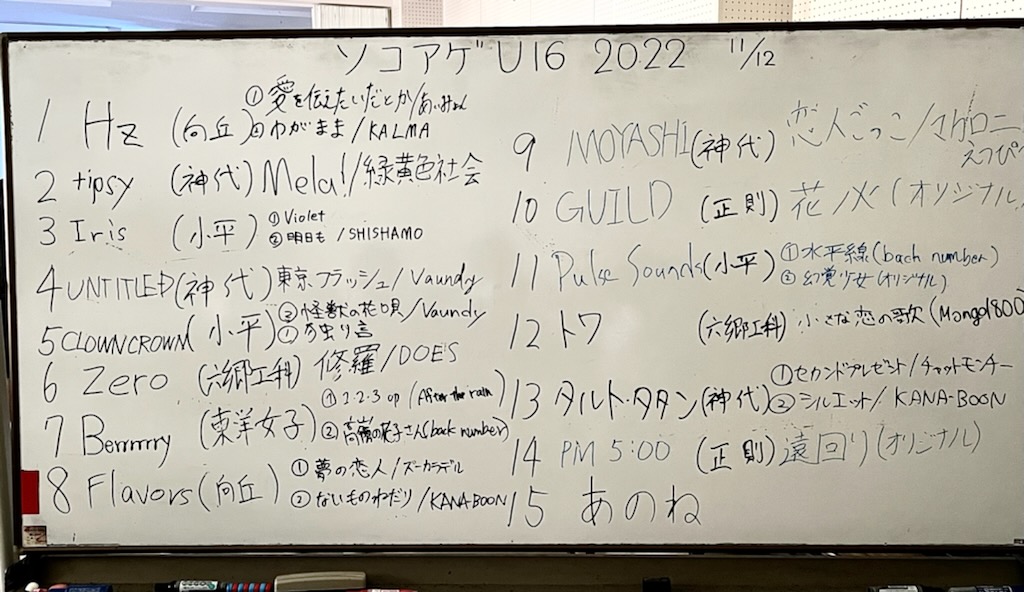 ソコアゲU16 2022 11/12
1 Hz (向丘) ①愛を伝えたいだとか/あいみょん
②わがまま/KALMA
2 tipsy (神代) Mela!/緑黄色社会
3 Iris (小平) ①Violet
②明日も/SHISHAMO
4 UNTITLED (神代) 東京フラッシュ/Vaundy
②怪獣の花唄/Vaundy
5 CLOWNCROWN (小平) ①独り言
6 Zero (六郷工科) 修羅/DOES
7 Berrrrrry (東洋女子) ①1・2・3 up/(After the rain)
②高嶺の花子さん(back number)
8 Flavors (向丘) ①夢の恋人/ズーカラデル
②ないものねだり/KANA-BOON
9 MOYASHI (神代) 恋人ごっこ/マカロニ
えんぴつ
10 GUILD (正則) 花ノ火 (オリジナル)
11 Pulse Sounds (小平) ①水平線(back number)
②幻覚少女(オリジナル)
12 トワ (六郷工科) 小さな恋の歌(Mongol800)
13 タルト・タタン (神代) ①セカンドプレゼント/チャットモンチー
②シルエット/KANA-BOON
14 PM 5:00 (正則) 遠回り(オリジナル)
15 あのね